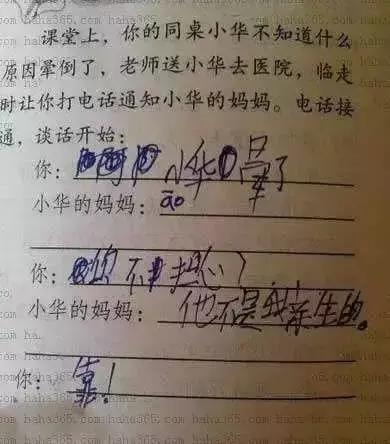 课堂上，你的同桌小华不知道什么
原因晕倒了，老师送小华去医院，临走
时让你打电话通知小华的妈妈。电话接
通，谈话开始：
你：小华晕了
小华的妈妈：āo
你：你不担心？
小华的妈妈：他不是我亲生的。
你：靠！